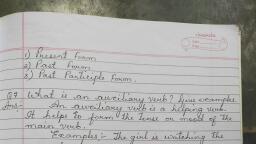 1) Present Form
2) Past Form
3) Past Participle Form.
Q7 What is an auxiliary verb? Give examples.
Ans- An auxiliary verb is a helping verb.
It helps to form the tense or mood of the
main verb.
Examples:- The girl is watching the